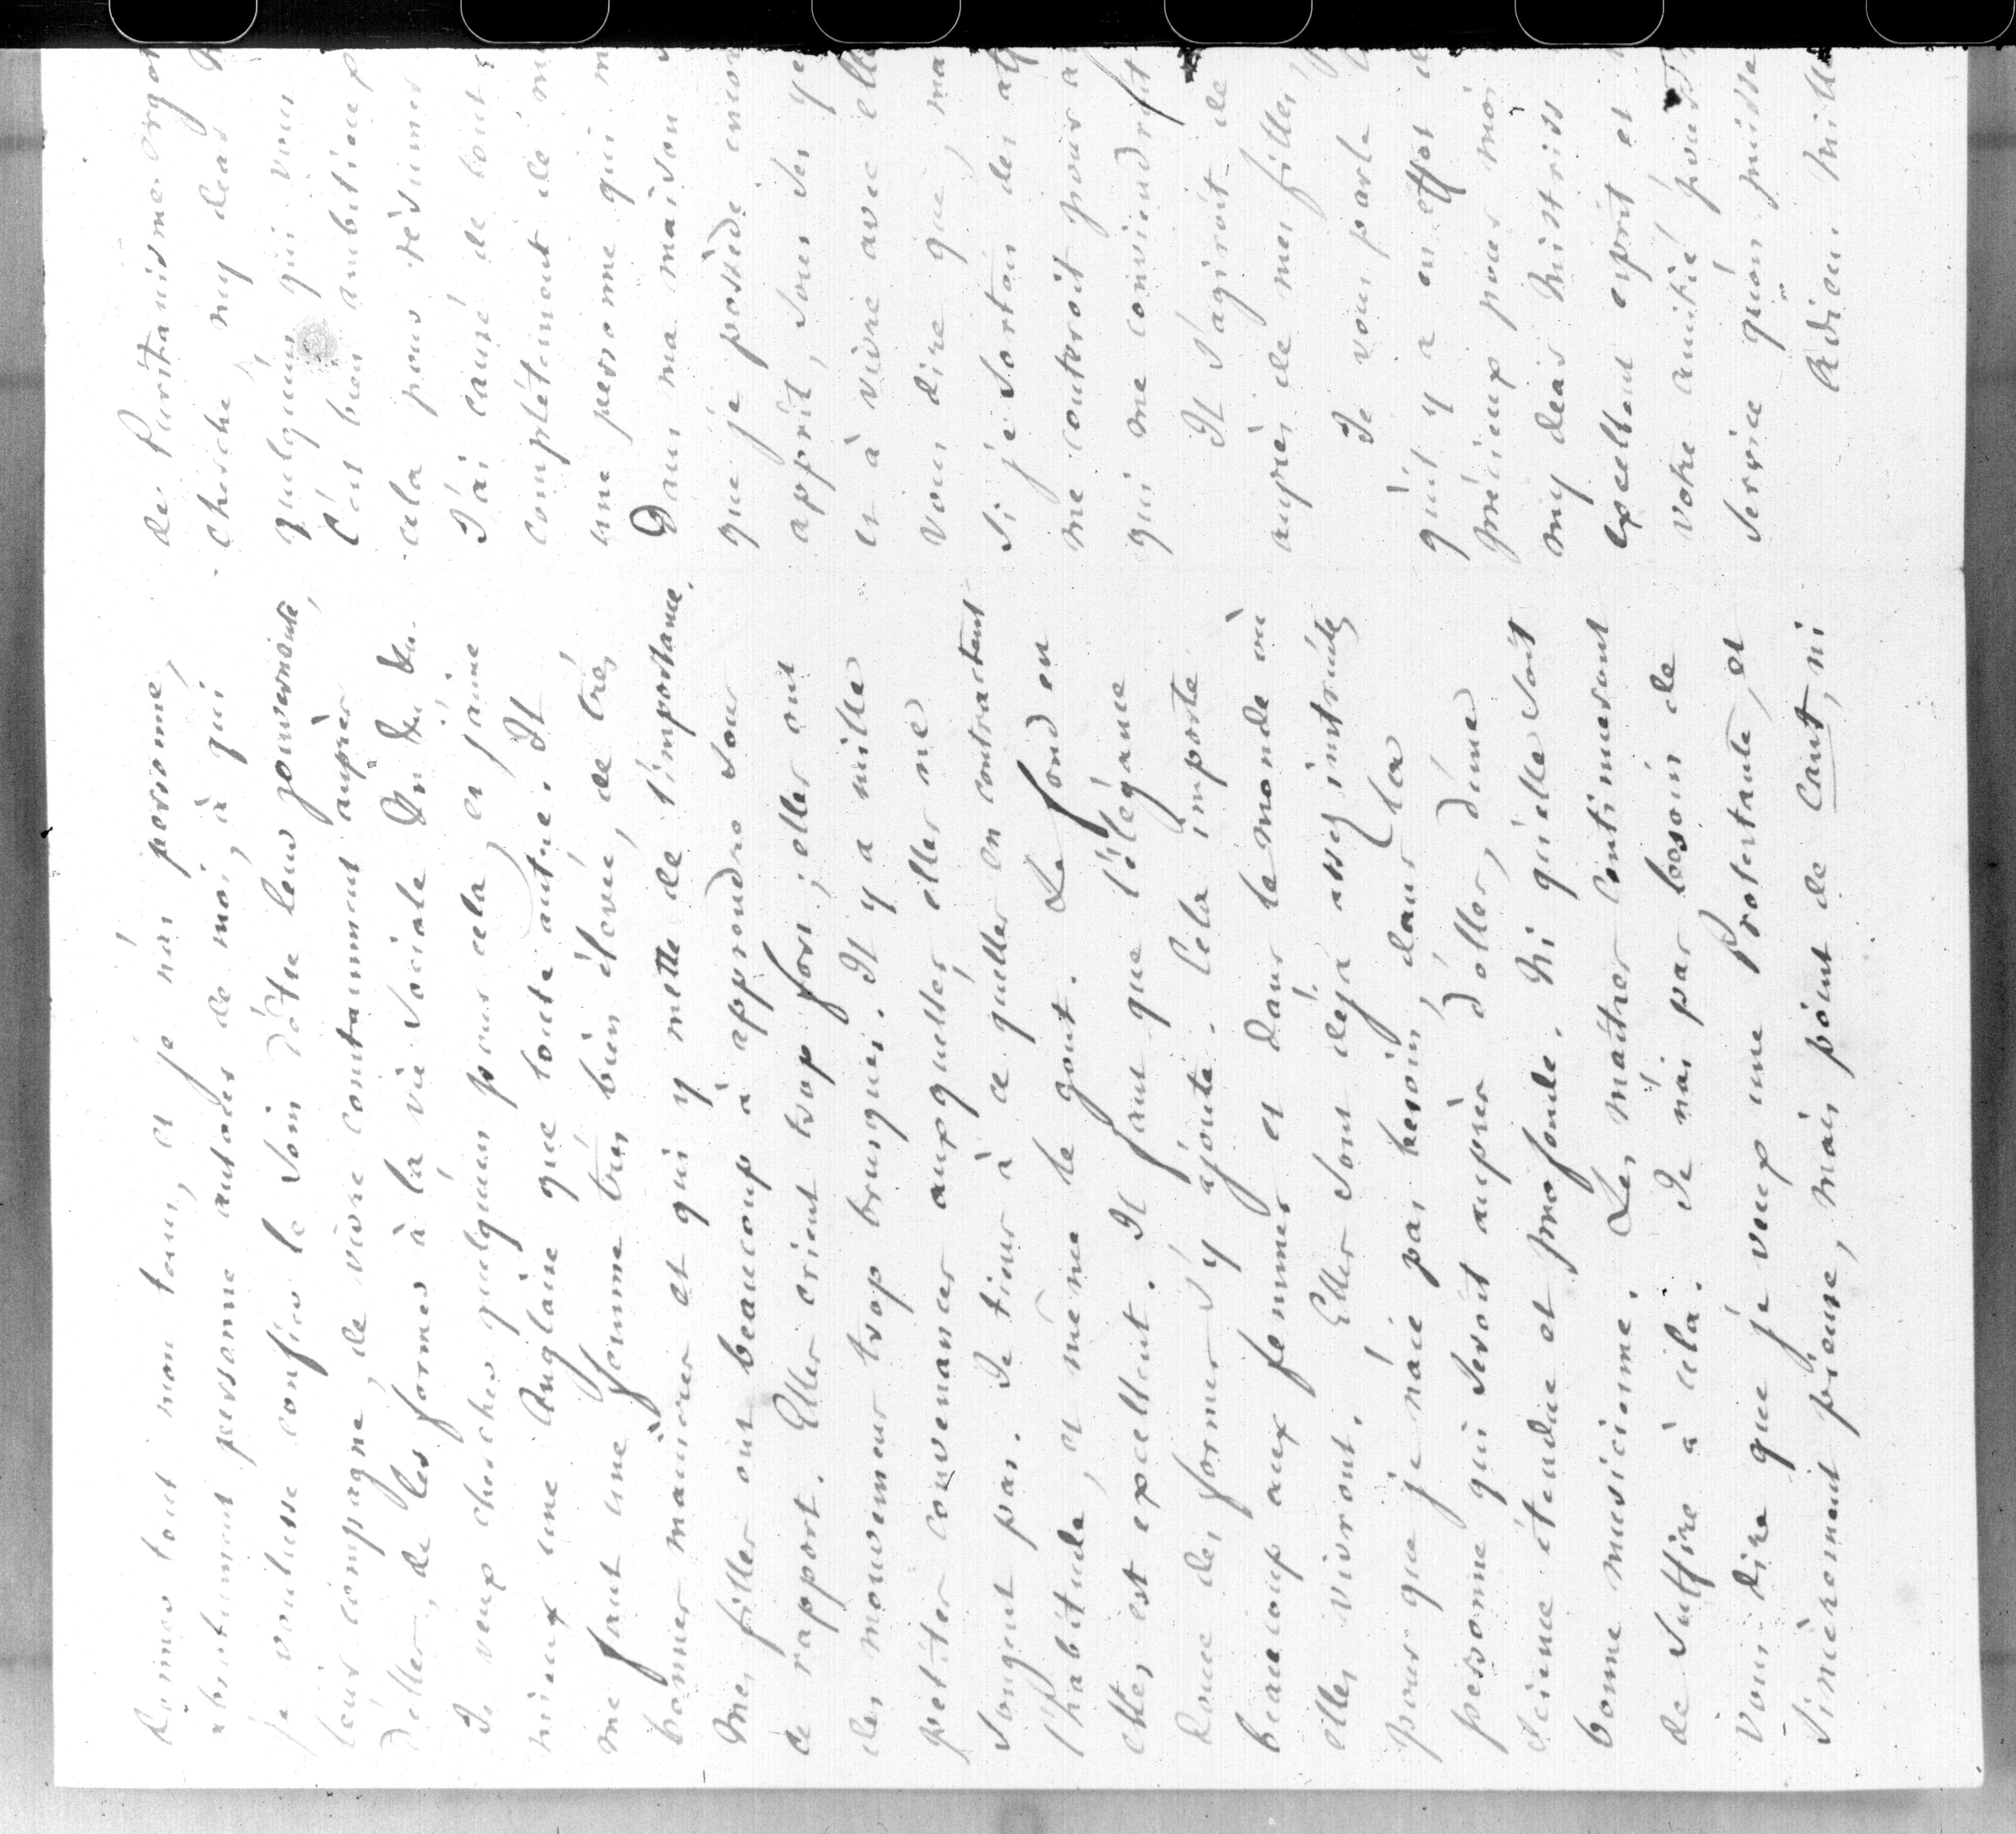 donner tout mon tems, et je n'ai personne,
absolument personne autour de moi, à qui
je voulusse confier le soin d'être leur gouvernante,
leur compagne, de vivre constamment auprès
d'elles, de les former à la vie sociale
Je veux chercher quelqu'un pour cela, et j'aime
mieux une Anglaise que toute autre. Il
me faut une femme très bien élevée, de très
bonnes manières et qui y mette de l'importance.
Mes filles ont beaucoup à apprendre sous
ce rapport. Elles crient trop fort ; elles ont
des mouvemens trop brusques. Il y a mille
petites convenances auxquelles elles ne
songent pas. Je tiens à ce qu'elles en contractent
l'habitude, et même le gout. Le fond en
elles est excellent. Il faut que l'élégance
douce des formes s'y ajoute. Cela importe
beaucoup aux femmes et dans le monde où
elles vivront. Elles sont déjà assez instruites
pour que je n'aie pas besoin, dans la
personne qui seroit auprès d'elles, d'une
science étendue et profonde. Ni qu'elle soit
bonne musicienne. Les maîtres continueront
de suffire à cela. Je n'ai pas besoin de
vous dire que je veux une Protestante, et
sincèrement pieuse, mais point de cant, ni
de Puritanisme
cherche, my dear
quelqu'un qui vous
C'est bien ambitieux
cela pour résumer
J'ai causé de tout
complétement de
une personne qui
Dans ma maison
que je possède
apprit, sous ses
et à vivre avec
vous dire que,
si je sortais des
me couteroit pour
qui me conviendroit
Il s'agiroit de
auprès de mes filles
Je vous parle
qu'il y a en effet
précieux pour moi
my dear Mistriss
excellent esprit et
votre amitié pour
service qu'on puisse
Adieu